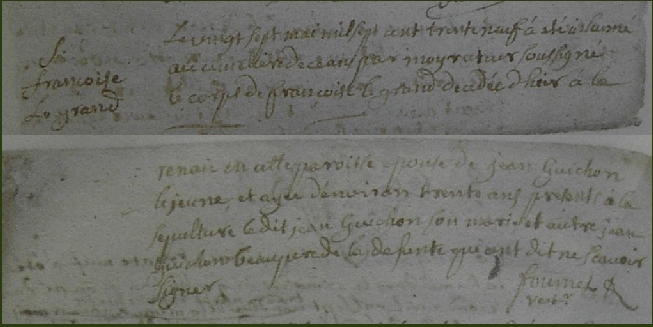 S.
françoise
Le grand
Le vingt sept mai mil sept cent trente neuf à été inhumé
au cimetière de ceans par moy vicaire soussigné
le corps de françoise le grand decedée d'hier à la
renais en cette paroisse epouse de jean Guichon
le jeune, et agée d'environ trente ans presents à la
sepulture ledit jean Guichon son mari et autre jean
guichon beaupere de la defunte qui ont dit ne scavoir
signer
fournet